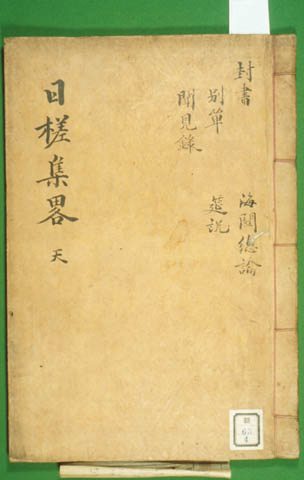 封書
海關總論
別單
筵說
聞見錄
日槎集畧
天